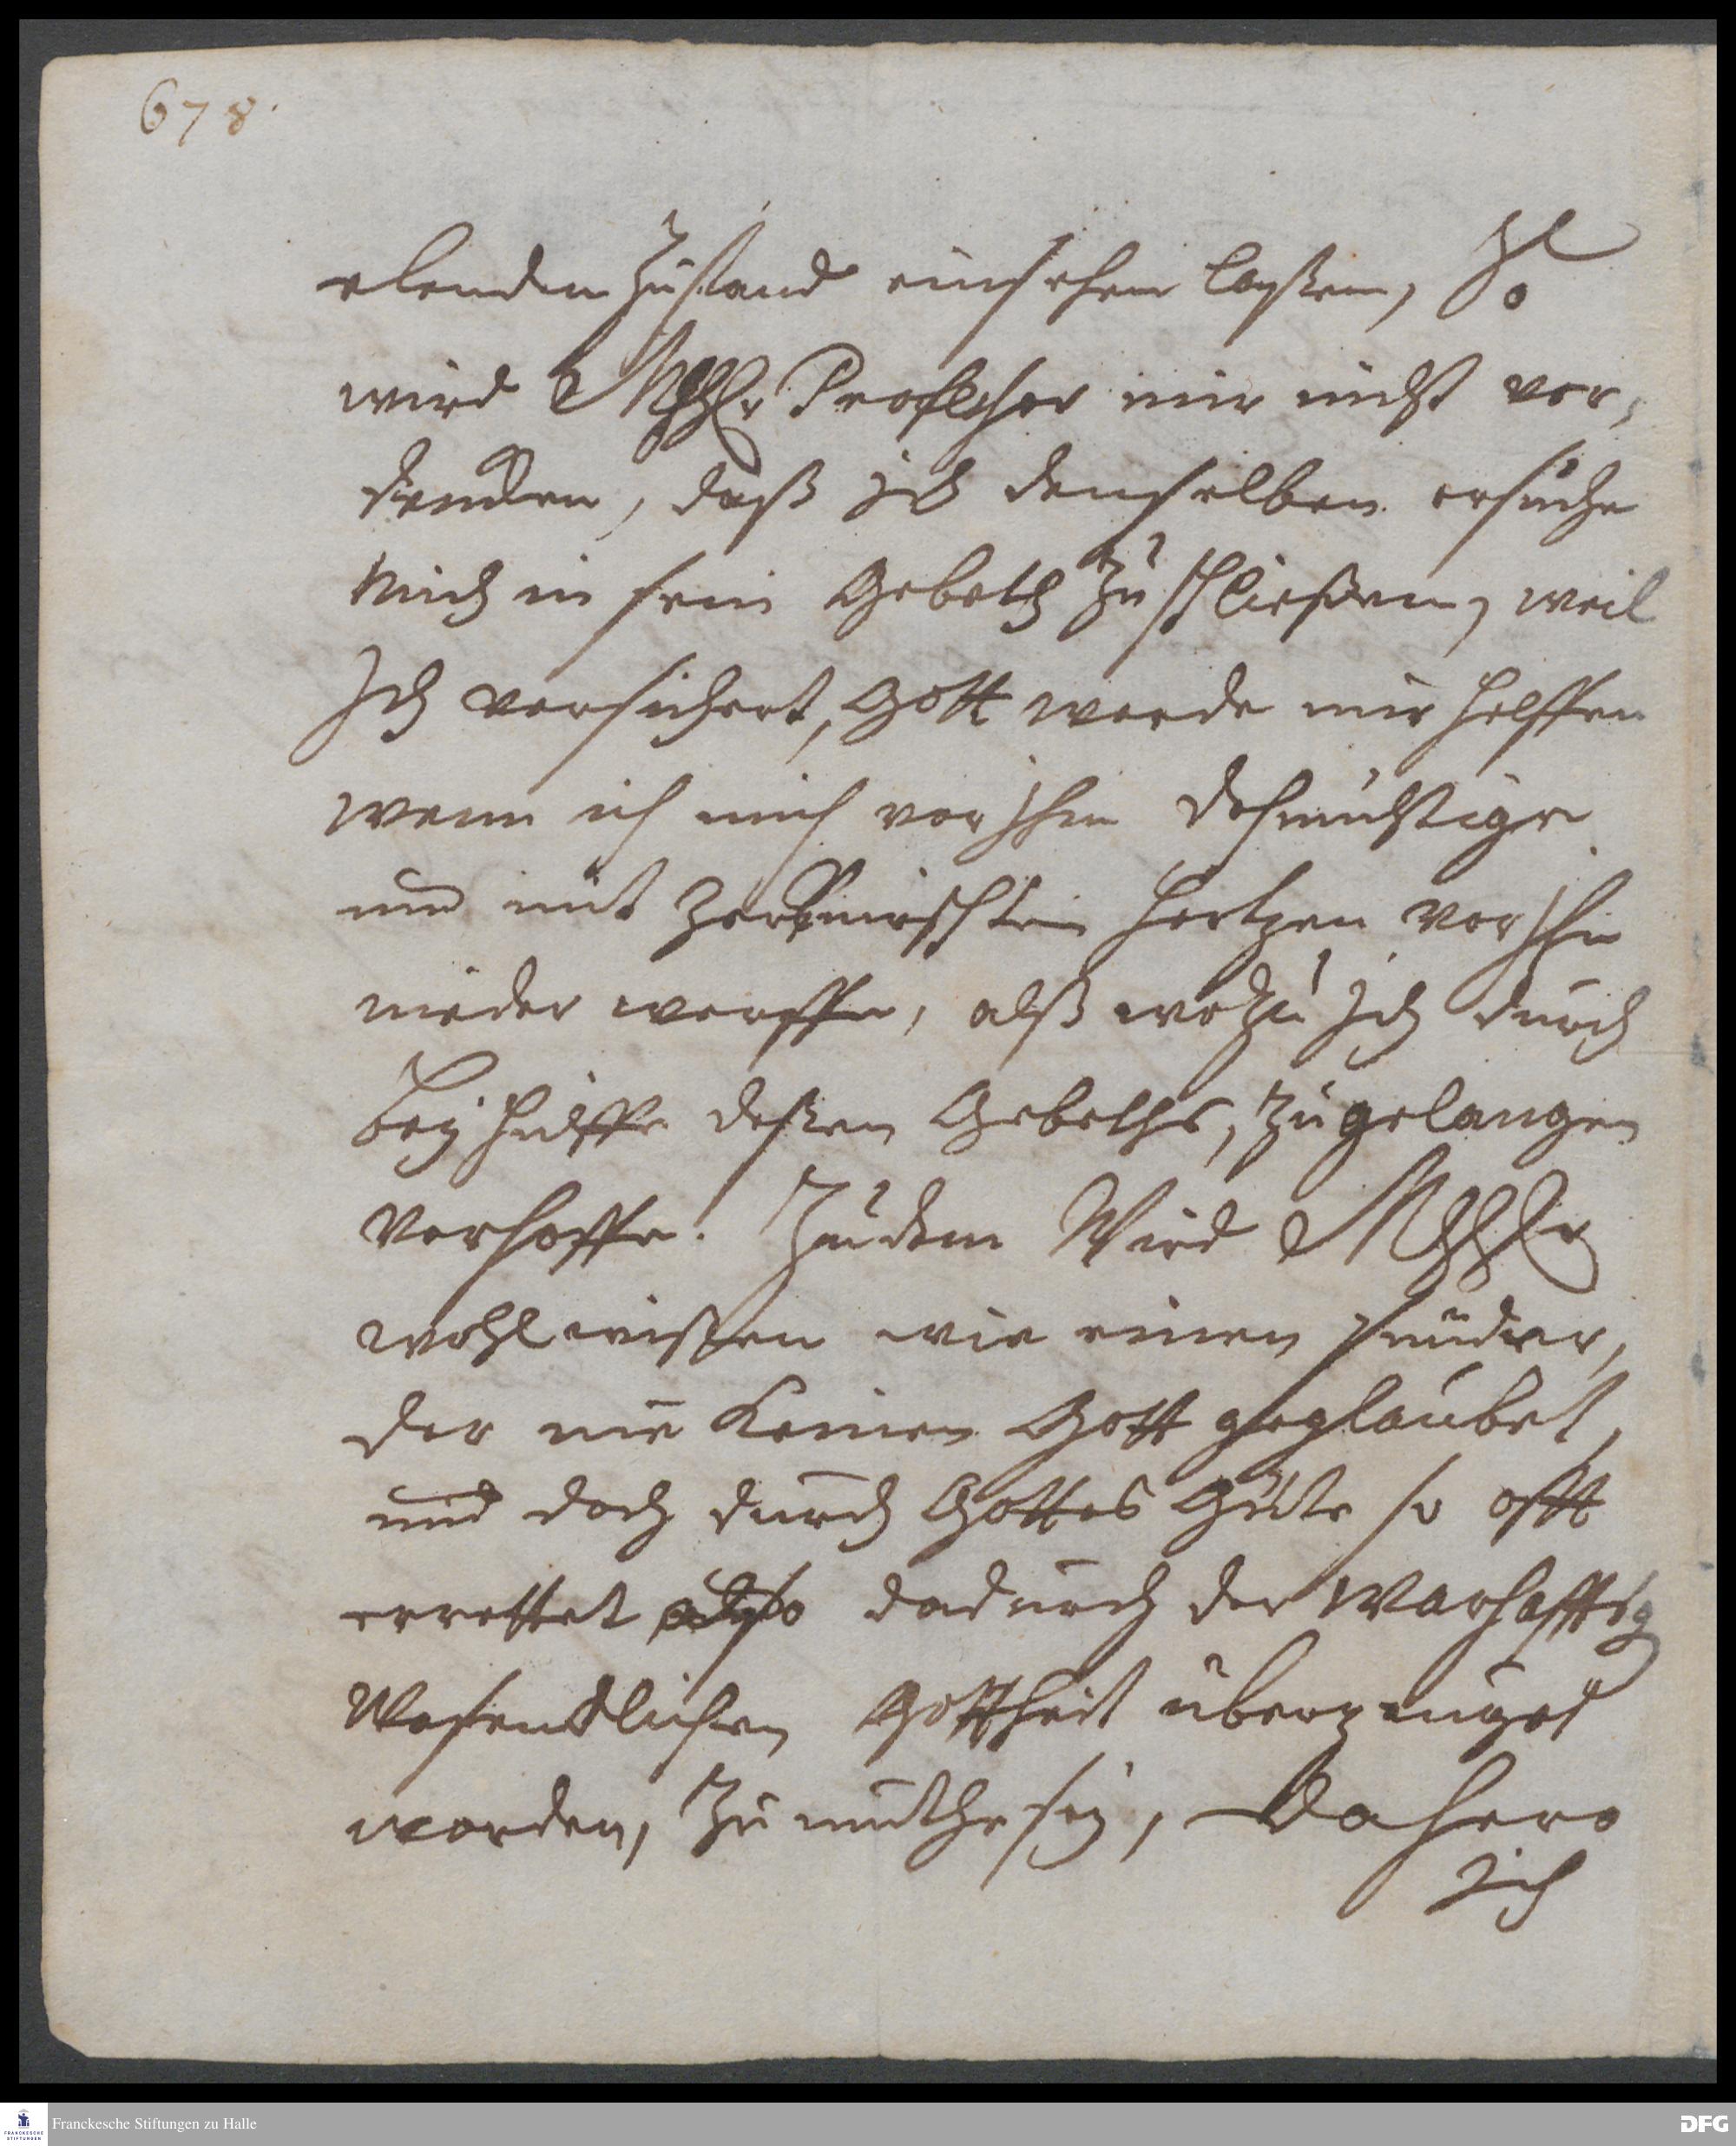 678.
elenden Zustand einsehen laßen, So
wird MHhEr Professor mir nicht ver,
dencken, daß ich denselben ersuche
Mich in sein Gebeth zu schließen, weil
Ich versichert, Gott werde mir helffen
wenn ich mich vor Ihm dehmühtige
und mit zerknirschten Hertzen vor Ihn
nieder werffe, alß wozu Ich durch
Beÿhülffe deßen Gebeths, zu gelangen
verhoffe. Zu dem Wird MHhEr
wohl wißen wie einen Sünder,
der nie keinen Gott geglaubet,
und doch durch Gottes Güte so offt
errettet also dadurch der Warhafftig
Wesendlichen Gottheit überzeuget
worden, zu muthe seÿ, Dahero
Ich
Franckesche Stiftungen zu Halle
FRANCKESCHE
STIFTUNGEN
DFG